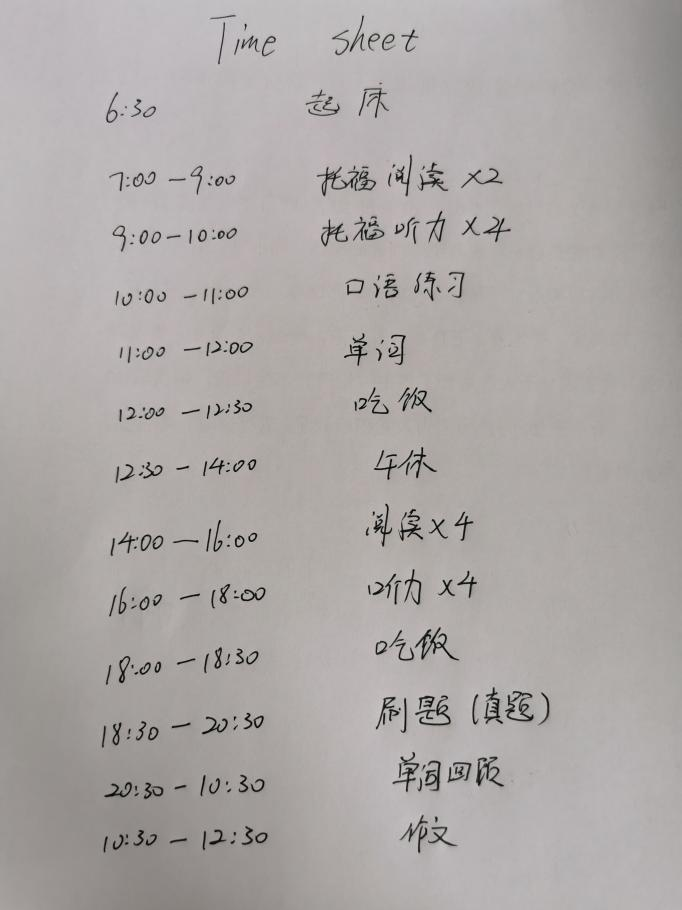 Time sheet
6:30 起床
7:00 — 9:00 托福阅读 ×2
9:00 — 10:00 托福听力 ×4
10:00 — 11:00 口语练习
11:00 — 12:00 单词
12:00 — 12:30 吃饭
12:30 — 14:00 午休
14:00 — 16:00 阅读 ×4
16:00 — 18:00 听力 ×4
18:00 — 18:30 吃饭
18:30 — 20:30 刷题 (真题)
20:30 — 10:30 单词回顾
10:30 — 12:30 作文